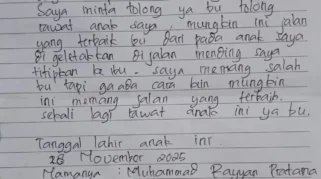 Saya minta tolong ya bu tolong
rawat anak saya, mungkin ini jalan
yang terbaik bu dari pada anak saya
di geletakan di jalan mending saya
titipkan ke ibu. saya memang salah
bu tapi ga ada cara lain mungkin
ini memang jalan yang terbaik.
sekali lagi rawat anak ini ya bu.
Tanggal lahir anak ini
28 November 2025
Namanya : Muhammad Rayyan Pratama